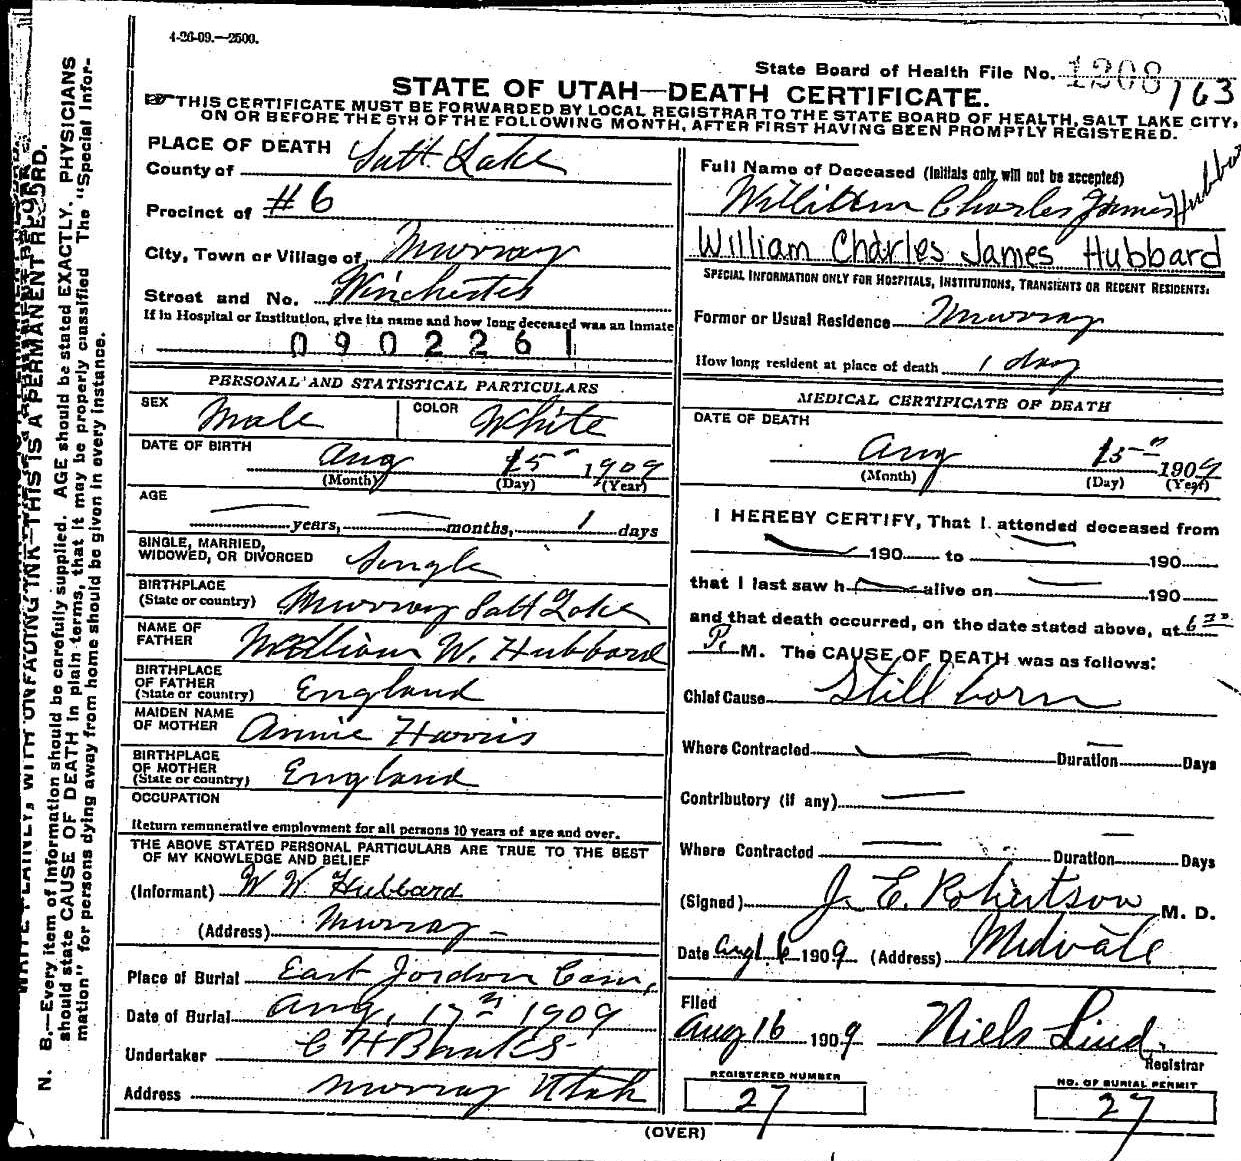 4-26-09.—2500.
State Board of Health File No. 1208 163
STATE OF UTAH—DEATH CERTIFICATE.
THIS CERTIFICATE MUST BE FORWARDED BY LOCAL REGISTRAR TO THE STATE BOARD OF HEALTH, SALT LAKE CITY,
ON OR BEFORE THE 5TH OF THE FOLLOWING MONTH, AFTER FIRST HAVING BEEN PROMPTLY REGISTERED.
PLACE OF DEATH
County of Salt Lake
Precinct of #6
City, Town or Village of Murray
Street and No. Winchester
If in Hospital or Institution, give its name and how long deceased was an Inmate
0902261
PERSONAL AND STATISTICAL PARTICULARS
SEX Male COLOR White
DATE OF BIRTH Aug 15 1909
(Month) (Day) (Year)
AGE
— years, — months, 1 days
SINGLE, MARRIED,
WIDOWED, OR DIVORCED Single
BIRTHPLACE
(State or country) Murray Salt Lake
NAME OF
FATHER William W. Hubbard
BIRTHPLACE
OF FATHER
(State or country) England
MAIDEN NAME
OF MOTHER Annie Harris
BIRTHPLACE
OF MOTHER
(State or country) England
OCCUPATION
Return remunerative employment for all persons 10 years of age and over.
THE ABOVE STATED PERSONAL PARTICULARS ARE TRUE TO THE BEST
OF MY KNOWLEDGE AND BELIEF
(Informant) W W Hubbard
(Address) Murray –
Place of Burial East Jordan Cem,
Date of Burial Aug, 17th 1909
Undertaker
Address Murray Utah
Full Name of Deceased (Initials only will not be accepted)
William Charles James Hubbard
William Charles James Hubbard
SPECIAL INFORMATION ONLY FOR HOSPITALS, INSTITUTIONS, TRANSIENTS OR RECENT RESIDENTS.
Former or Usual Residence Murray
How long resident at place of death 1 day
MEDICAL CERTIFICATE OF DEATH
DATE OF DEATH
Aug 15 1909
(Month) (Day) (Year)
I HEREBY CERTIFY, That I attended deceased from
— 190 to — 190
that I last saw h — alive on — 190
and that death occurred, on the date stated above, at 6
P. M. The CAUSE OF DEATH was as follows:
Chief Cause Still born
Where Contracted — Duration — Days
Contributory (if any) —
Where Contracted — Duration — Days
(Signed) J. E. Robertson M. D.
Date Aug 16 1909 (Address) Midvale
Filed
Aug 16 1909 Niels Lind.
Registrar
REGISTERED NUMBER
27
NO. OF BURIAL PERMIT
27
(OVER)
WRITE PLAINLY, WITH UNFADING INK—THIS IS A PERMANENT RECORD.
N. B.—Every item of information should be carefully supplied. AGE should be stated EXACTLY. PHYSICIANS
should state CAUSE OF DEATH in plain terms, that it may be properly classified. The "Special Infor-
mation" for persons dying away from home should be given in every instance.